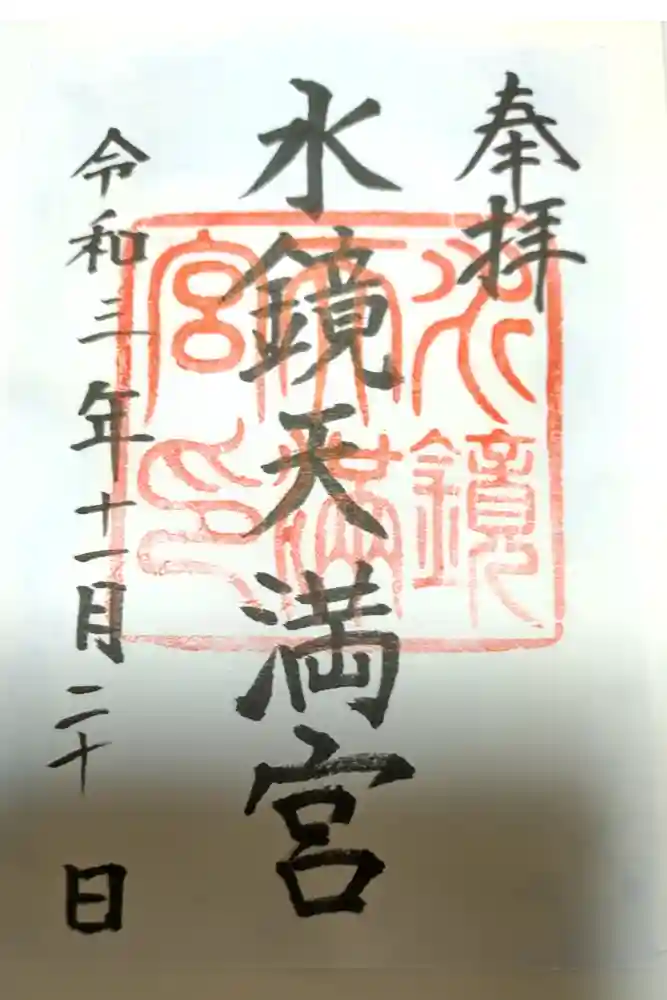 奉拝
水鏡天満宮
水鏡天満宮印
令和三年十一月二十日